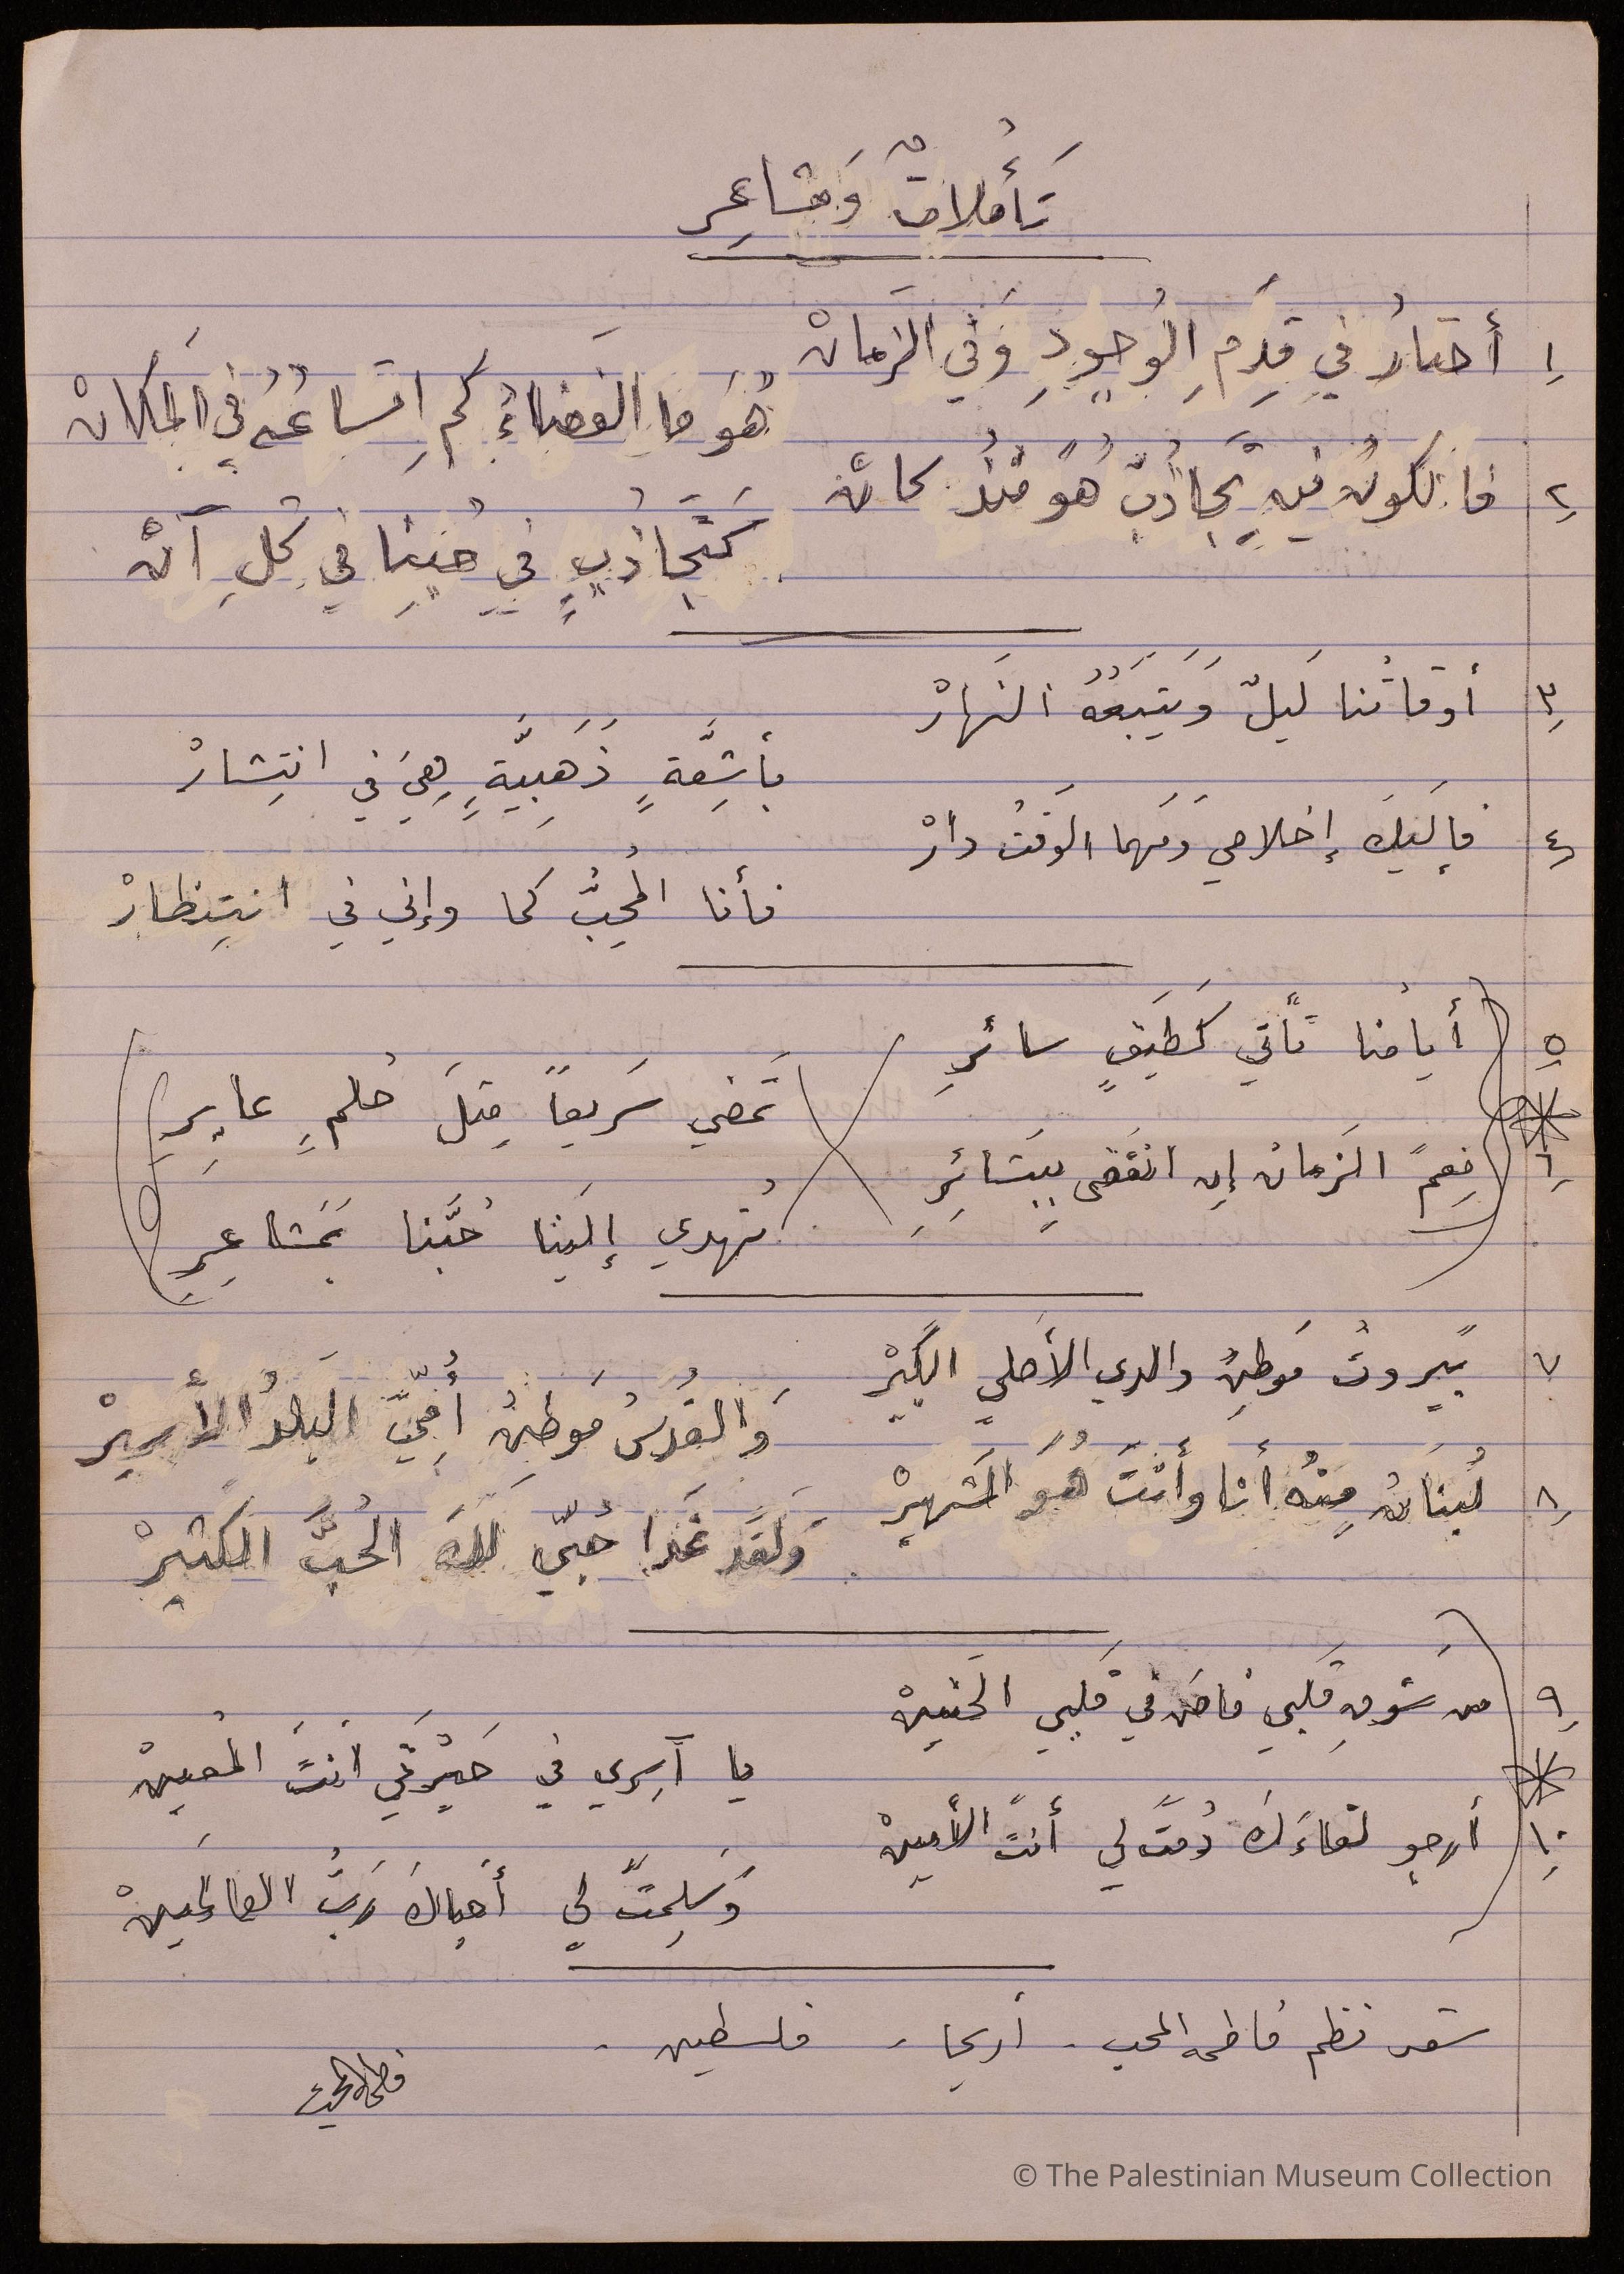 تَأَمُلاتٌ وَمَشاعِر
١ أحتارُ في قِدَمِ الوُجودِ وَفي الزَمانْ
هُوَ ما الفضاءُ كم اِتساعُهُ في المَكانْ
٢ فالكونُ فيهِ تَجاذُبٌ هُوَ مُنْذُ كانْ
كَتَجاذُبٍ في حُبِنا في كُلِ آنْ
٣ أوقاتُنا لَيلٌ وَيَتبَعُهُ النَهارْ
بأشِعَّةٍ ذَهَبِيَّةٍ هِيَ في انتِشارْ
٤ فإلَيكَ إخلاصي وَمَهما الوَقتُ دارْ
فأنا المُحِبُّ كما وإني في انتِظارْ
٥ أيامُنا تَأتي كَطَيفٍ سائرِ
تَمضي سَريعاً مِثلَ حُلمٍ عابِرِ
٦ نِعمَ الزَمانُ إنِ انقَضى بِبَشائِرِ
تُهدي إلَينا حُبَّنا بمَشاعِرِ
٧ بَيروتُ مَوطِنُ والدي الأَصلي الكَبيرْ
وَالقُدسُ مَوطِنُ أُمِّيَ البَلدُ الأَسيرْ
٨ لُبنَانُ مِنْهُ أنا وَأَنْتَ هُوَ الشَهيرْ
وَلَقَد غَدا حُبّي لَكَ الحُبَّ الكَثيرْ
٩ من شَوقِ قَلبي فاضَ في قَلبي الحَنينْ
يا آسِري في حَيْرَتي أنتَ المُعينْ
١٠ أرجو لقاءَكَ دُمتَ لي أنتَ الأمينْ
وَسَلِمتَ لي أحياكَ رَبُّ العالَمينْ
شعر نظم فاطمة المحب - أريحا - فلسطين -
فاطمة المحب
© The Palestinian Museum Collection